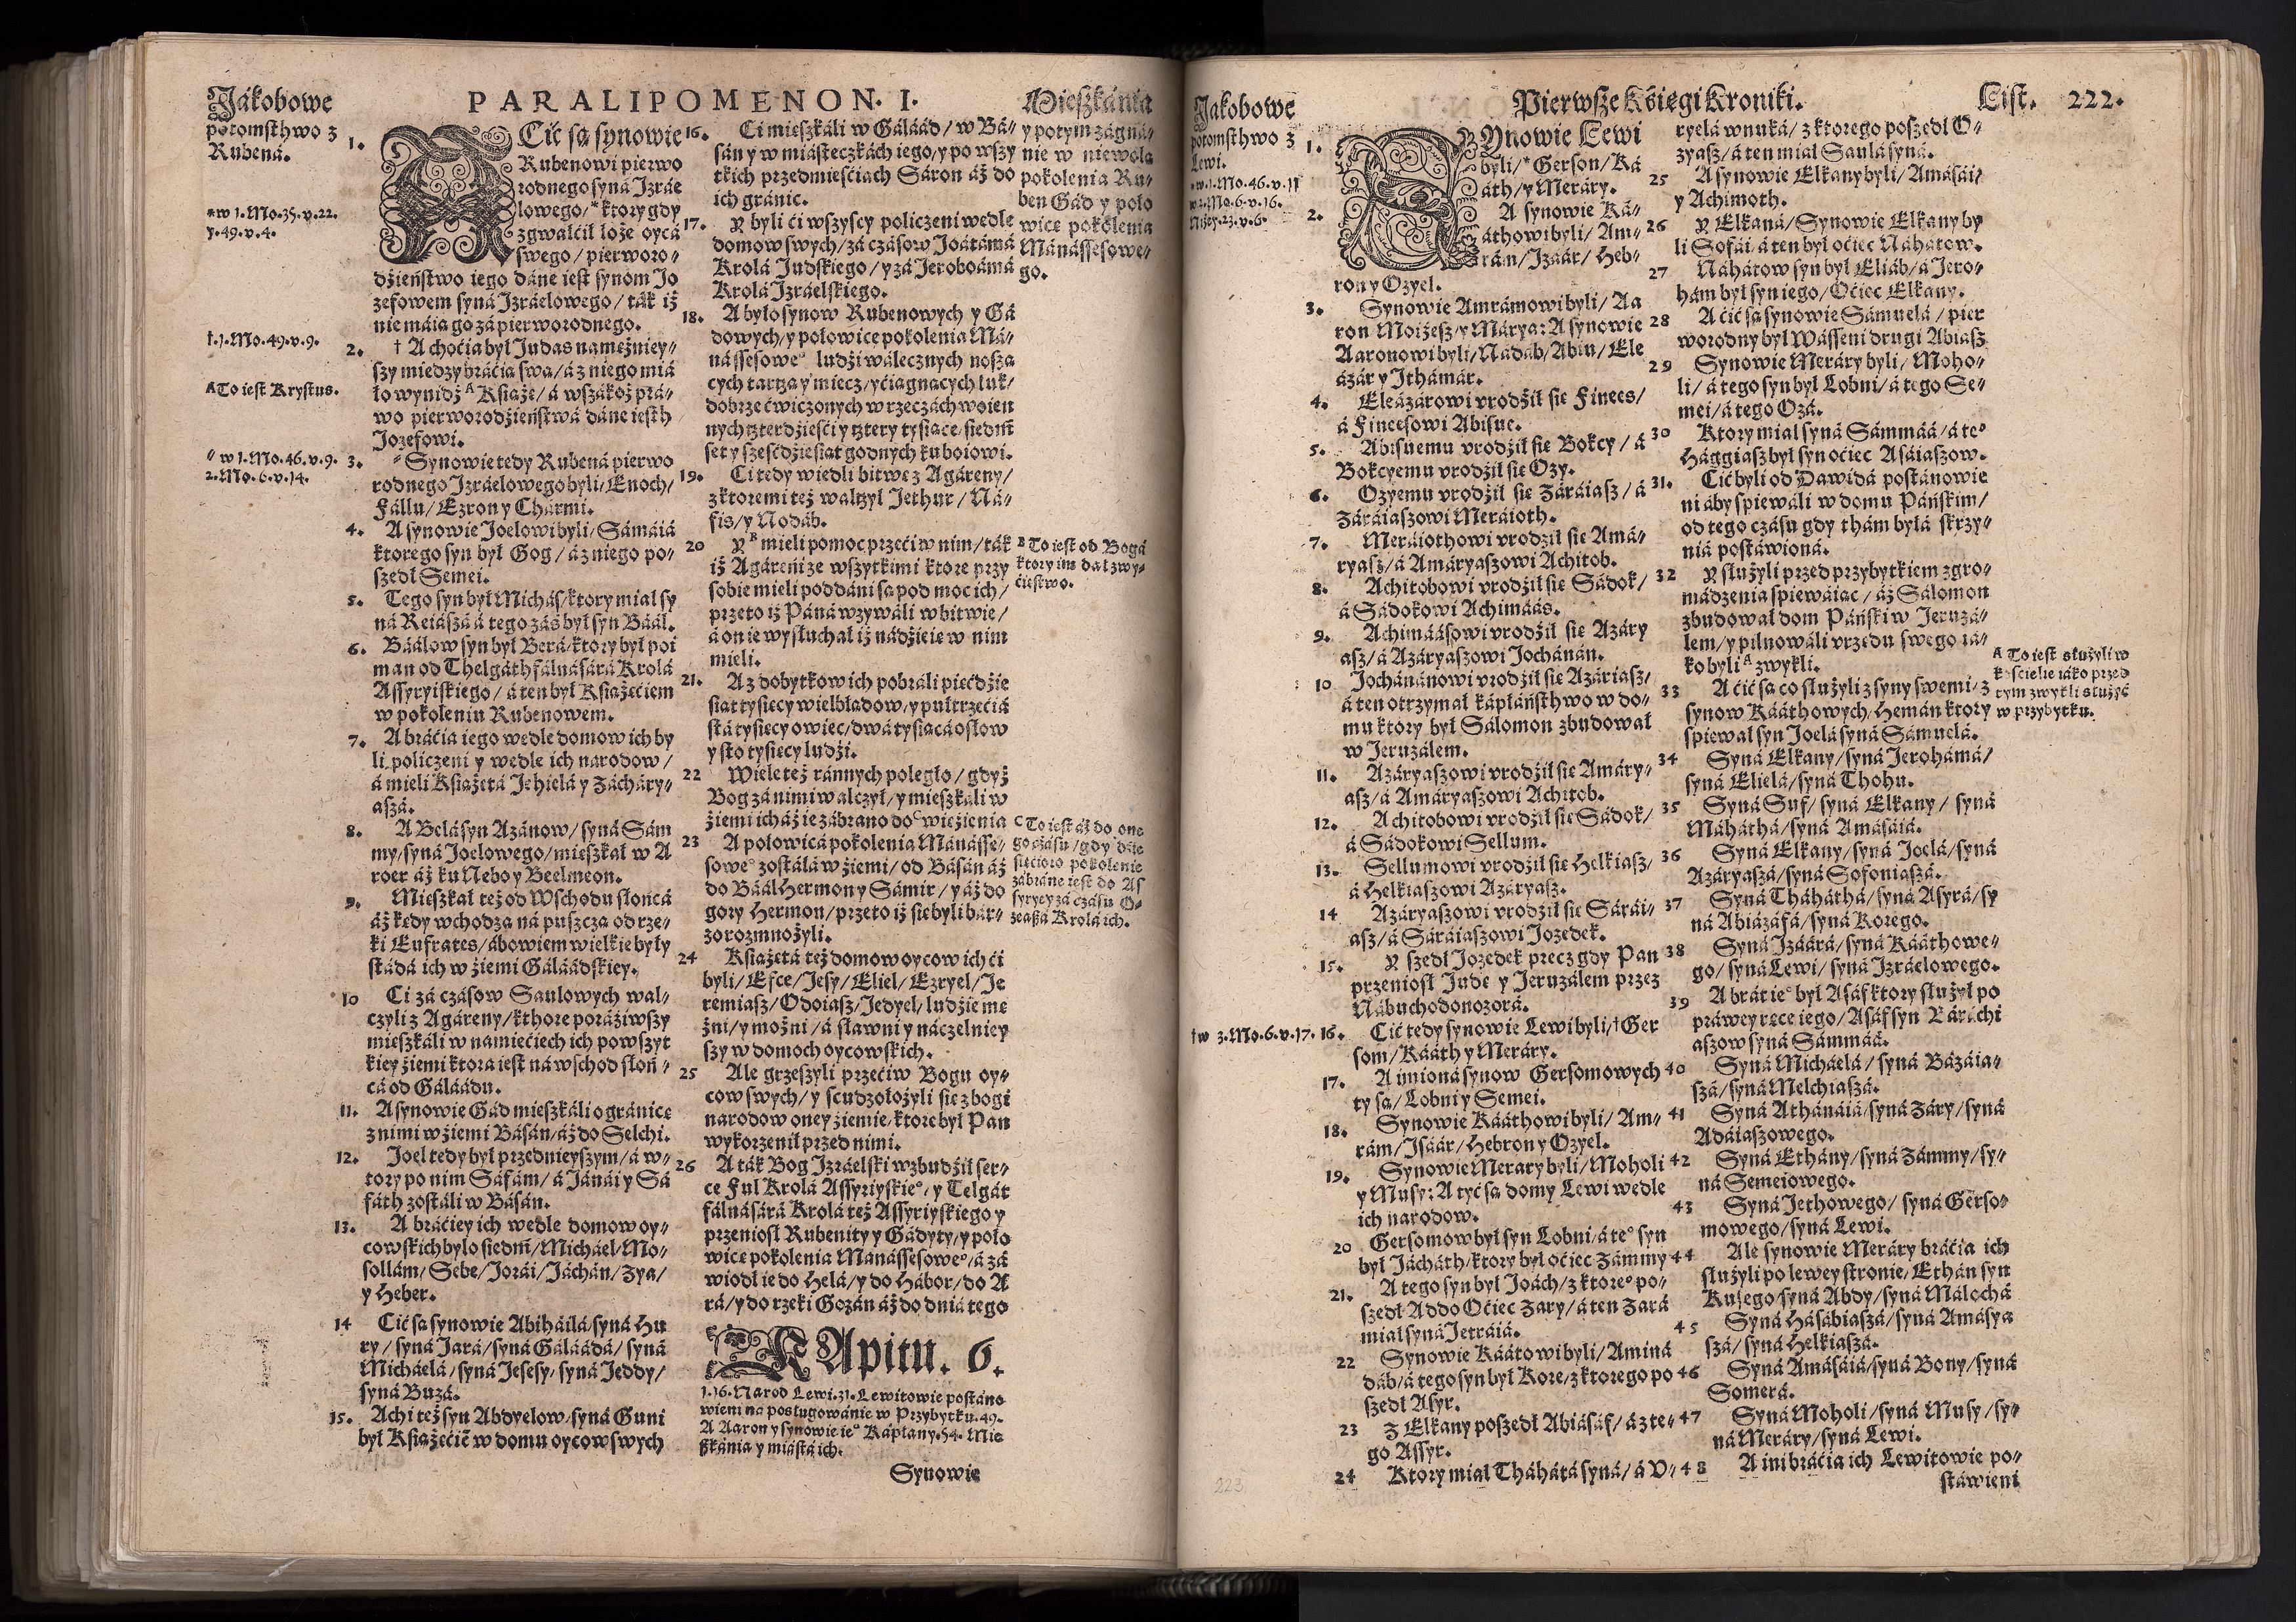 Jákobowe
PARALIPOMENON. I.
Mieszkánia
potomsthwo z
Rubená.
*w 1. Mo. 35. v. 22.
y. 49. v. 4.
†. 1. Mo. 49. v. 9.
A To iest Krystus.
" w 1. Mo. 46. v. 9.
2. Mo. 6. v. 14.
1. A Cić są synowie
Rubenowi pierwo
rodnego syná Izráe
lowego/ * ktory gdy
zgwałcił łoże oycá
swego/ pierworo⸗
dźieństwo iego dáne iest synom Jo
zefowem syná Izráelowego/ ták iż
nie máią go zá pierworodnego.
2. † A choćia był Judas namężniey⸗
szy miedzy bráćia swą/ á z niego miá
ło wynidź A Książę/ á wszákoż prá⸗
wo pierworodzieństwá dáne iesth
Jozefowi.
3. " Synowie tedy Rubená pierwo
rodnego Izráelowego byli/ Enoch/
Fállu/ Ezron y Chármi.
4. A synowie Joelowi byli/ Sámáiá
ktorego syn był Gog/ á z niego po⸗
szedł Semei.
5. Tego syn był Michás/ ktory miał sy
ná Reiászá á tego zás był syn Báál.
6. Báálow syn był Berá/ ktory był poi
man od Thelgáth fálnásárá Krolá
Assyryiskiego/ á ten był Książęćiem
w pokoleniu Rubenowem.
7. A bráćia iego wedle domow ich by
li policzeni y wedle ich narodow/
á mieli Książętá Jehielá y Zácháry⸗
aszá.
8. A Belá syn Azánow/ syná Sám
my/ syná Joelowego/ mieszkał w A
roer áż ku Nebo y Beelmeon.
9. Mieszkał też od Wschodu słońcá
áż kędy wchodzą ná puszczą od rze⸗
ki Eufrates/ ábowiem wielkie były
stádá ich w źiemi Gáláádskiey.
10 Ci zá czásow Saulowych wal⸗
czyli z Agáreny/ kthore poráziwszy
mieszkáli w namiećiech ich po wszyt
kiey źiemi ktora iest ná wschod słoń⸗
cá od Gáláádu.
11. A synowie Gád mieszkáli o gránice
z nimi w źiemi Básán/ áż do Selchi.
12. Joel tedy był przednieyszym/ á w⸗
tory po nim Sáfám/ á Jánái y Sá
fáth zostáli w Básán.
13. A bráćiey ich wedle domow oy⸗
cowskich bylo siedm̄/ Micháel/ Mo⸗
sollám/ Sebe/ Jorái/ Jáchán/ Zya/
y Heber.
14 Cić są synowie Abiháilá/ syná Hu
ry/ syná Járá/ syná Gáláádá/ syná
Micháelá/ syná Jesesy/ syná Jeddy/
syná Buzá.
15. Achi też syn Abdyelow/ syná Guni
był Książęćiē w domu oycow swych
16. Ci mieszkáli w Gáláád/ w Bá⸗
sán y w miásteczkách iego/ y po wszy
tkich przedmieśćiach Sáron áż do
ich gránic.
17. Y byli ći wszyscy policzeni wedle
domow swych/ zá czásow Joátámá
Krolá Judskiego/ y zá Jeroboámá
Krolá Izráelskiego.
18. A było synow Rubenowych y Gá
dowych/ y połowice pokolenia Má⸗
nássesoweº ludźi wálecznych noszą
cych tarczą y miecz/ y ćiągnących łuk/
dobrze ćwiczonych w rzeczách woien
nych czterdźieśći y cztery tysiące/ siedm̄
set y sześćdźieśiąt godnych ku boiowi.
19. Ci tedy wiedli bitwę z Agáreny/
z ktoremi też walczył Jethur/ Ná⸗
fis/ y Nodáb.
20 Y B mieli pomoc przećiw nim/ ták
iż Agáreni ze wszytkimi ktore przy
sobie mieli poddáni są pod moc ich/
przeto iż Páná wzywáli w bitwie/
á on ie wysłuchał iż nádźieię w nim
mieli.
21. A z dobytkow ich pobráli pięćdźie
siąt tysięcy wielbłądow/ y pułtrzećiá
stá tysięcy owiec/ dwá tysiącá osłow
y sto tysięcy ludźi.
22 Wiele też ránnych poległo/ gdyż
Bog zá nimi walczył/ y mieszkáli w
źiemi ich áż ie zábrano do C więźienia
23 A połowicá pokolenia Mánásse⸗
soweº zostáłá w źiemi/ od Básán áż
do Báál Hermon y Sámir/ y áż do
gory Hermon/ przeto iż się byli bár⸗
zo rozmnożyli.
24 Książętá też domow oycow ich ći
byli/ Efce/ Jesy/ Eliel/ Ezryel/ Je
remiasz/ Odoiasz/ Jedyel/ ludźie mę
żni/ y możni/ á sławni y náczelniey
szy w domoch oycowskich.
25 Ale grzeszyli przećiw Bogu oy⸗
cow swych/ y scudzołożyli się z bogi
narodow oney źiemie/ ktore był Pan
wykorzenił przed nimi.
26 A ták Bog Izráelski wzbudźił ser⸗
ce Ful Krolá Assyriyskieº/ y Telgát
fálnásárá Krolá też Assyriyskiego y
przeniosł Rubenity y Gádyty/ y poło
wicę pokolenia Manássesoweº/ á zá
wiodł ie do Helá/ y do Hábor/ do A
rá/ y do rzeki Gozán áż do dniá tego
KApitu. 6.
1. 16. Narod Lewi. 31. Lewitowie postáno
wieni na posługowánie w Przybytku. 49.
A Aaron y synowie ieº Káplany. 54. Mie
szkánia y miástá ich.
Synowie
y potym zágná⸗
nie w niewolą
pokolenia Ru⸗
ben Gád y poło
wice pokolenia
Mánássesowe⸗
go.
B To iest od Bogá
ktory im dał zwy⸗
ćięstwo.
C To iest áż do one
go czásu/ gdy dźie
sięćioro pokolenie
zábráne iest do As
syryey zá czásu O⸗
zeaszá Krolá ich.
Jakobowe
Pierwsze Księgi Kroniki.
List. 222.
potomsthwo z
Lewi.
*w. 1. Mo. 46. v. 11
w 2. Mo. 6. v. 16.
Niżey. 23. v. 6.
†w 3. Mo. 6. v. 17.
1. SYnowie Lewi
byli/ * Gerson/ Ká
áth/ y Meráry.
2. A synowie Ká⸗
áthowi byli/ Am⸗
rám/ Izáár/ Heb⸗
ron y Ozyel.
3. Synowie Amrámowi byli/ Aa
ron Moiżesz/ y Márya: A synowie
Aaronowi byli/ Nádáb/ Abiu/ Ele
ázár y Ithámár.
4. Eleázárowi vrodźił się Finees/
á Fineesowi Abisue.
5. Abisuemu vrodźił się Bokcy/ á
Bokcyemu vrodźił się Ozy.
6. Ozyemu vrodźił się Záráiasz/ á
Záráiaszowi Meráioth.
7. Meráiothowi vrodził się Amá⸗
ryasz/ á Amáryaszowi Achitob.
8. Achitobowi vrodźił się Sádok/
á Sádokowi Achimáás.
9. Achimáásowi vrodźił się Azáry
asz/ á Azáryaszowi Jochánán.
10 Jochánánowi vrodźił się Azáriasz/
á ten otrzymał káplánsthwo w do⸗
mu ktory był Sálomon zbudował
w Jeruzálem.
11. Azáryaszowi vrodźił się Amáry⸗
asz/ á Amáryaszowi Achitob.
12. Achitobowi vrodźił się Sádok/
á Sádokowi Sellum.
13. Sellumowi vrodźił się Helkiasz/
á Helkiaszowi Azáryasz.
14 Azáryaszowi vrodźił się Sárái⸗
asz/ á Sáráiaszowi Jozedek.
15. Y szedł Jozedek precz gdy Pan
przeniosł Judę y Jeruzálem przez
Nábuchodonozorá.
16. Cić tedy synowie Lewi byli/ † Ger
som/ Kááth y Meráry.
17. A imioná synow Gersomowych
ty są/ Lobni y Semei.
18. Synowie Kááthowi byli/ Am⸗
rám/ Isáár/ Hebron y Ozyel.
19. Synowie Merary byli/ Moholi
y Musy: A tyć są domy Lewi wedle
ich narodow.
20 Gersomow był syn Lobni/ á teº syn
był Jácháth/ ktory był oćiec Zámmy
21. A tego syn był Joách/ z ktoreº po⸗
szedł Addo Oćiec Zary/ á ten Zárá
miał syná Jetráiá.
22 Synowie Káátowi byli/ Aminá
dáb/ á tego syn był Kore/ z ktorego po
szedł Asyr.
23 Z Elkany poszedł Abiásáf/ á z te⸗
go Assyr.
24 Ktory miał Tháhátá syná/ á V⸗
ryelá wnuká/ z ktorego poszedł O⸗
zyasz/ á ten miał Saulá syná.
25 A synowie Elkany byli/ Amásái/
y Achimoth.
26 Y Elkaná/ Synowie Elkany by
li Sofái/ á ten był oćiec Náhátow.
27 Náhátow syn był Eliáb/ á Jero⸗
hám był syn iego/ Oćiec Elkany.
28 A ćić są synowie Sámuelá/ pier
worodny był Wásseni drugi Abiasz
29 Synowie Meráry byli/ Moho⸗
li/ á tego syn był Lobni/ á tego Se⸗
mei/ á tego Ozá.
30 Ktory miał syná Sámmáá/ á teº
Hággiasz był syn oćiec Asáiaszow.
31. Cić byli od Dawidá postánowie
ni áby spiewáli w domu Páńskim/
od tego czásu gdy thám byłá skrzy⸗
niá postáwioná.
32 Y służyli przed przybytkiem zgro⸗
mádzenia spiewáiąc/ áż Sálomon
zbudował dom Páński w Jeruzá⸗
lem/ y pilnowáli vrzędu swego iá⸗
ko byli A zwykli.
33 A ćić są co służyli z syny swemi/ z
synow Kááthowych/ Hemán ktory
spiewał syn Joelá syná Sámuelá.
34 Syná Elkany/ syná Jerohámá/
syná Elielá/ syná Thohu.
35 Syná Suf/ syná Elkany/ syná
Máháthá/ syná Amásáiá.
36 Syná Elkany/ syná Joelá/ syná
Azáryaszá/ syná Sofoniaszá.
37 Syná Tháháthá/ syná Asyrá/ sy
ná Abiázáfá/ syná Korego.
38 Syná Izáárá/ syná Kááthowe⸗
go/ syná Lewi/ syná Izráelowego.
39 A brát ieº był Asáf ktory służył po
práwey ręce iego/ Asáf syn Báráchi
aszow syná Sámmáá.
40 Syná Micháelá/ syná Bázáia⸗
szá/ syná Melchiaszá.
41 Syná Athánáiá/ syná Záry/ syná
Adáiaszowego.
42 Syná Ethány/ syná Zámmy/ sy⸗
ná Semeiowego.
43 Syná Jethowego/ syná Gerso⸗
mowego/ syná Lewi.
44 Ale synowie Meráry bráćia ich
służyli po lewey stronie/ Ethán syn
Kusego/ syná Abdy/ syná Málochá
45 Syná Hásábiaszá/ syná Amásya
szá/ syná Helkiaszá.
46 Syná Amásáiá/ syná Bony/ syná
Somerá.
47 Syná Moholi/ syná Musy/ sy⸗
ná Meráry/ syná Lewi.
48 A ini bráćia ich Lewitowie po⸗
stáwieni
A To iest służyli w
kośćiele iáko przed
tym zwykli służyć
w przybytku.
223